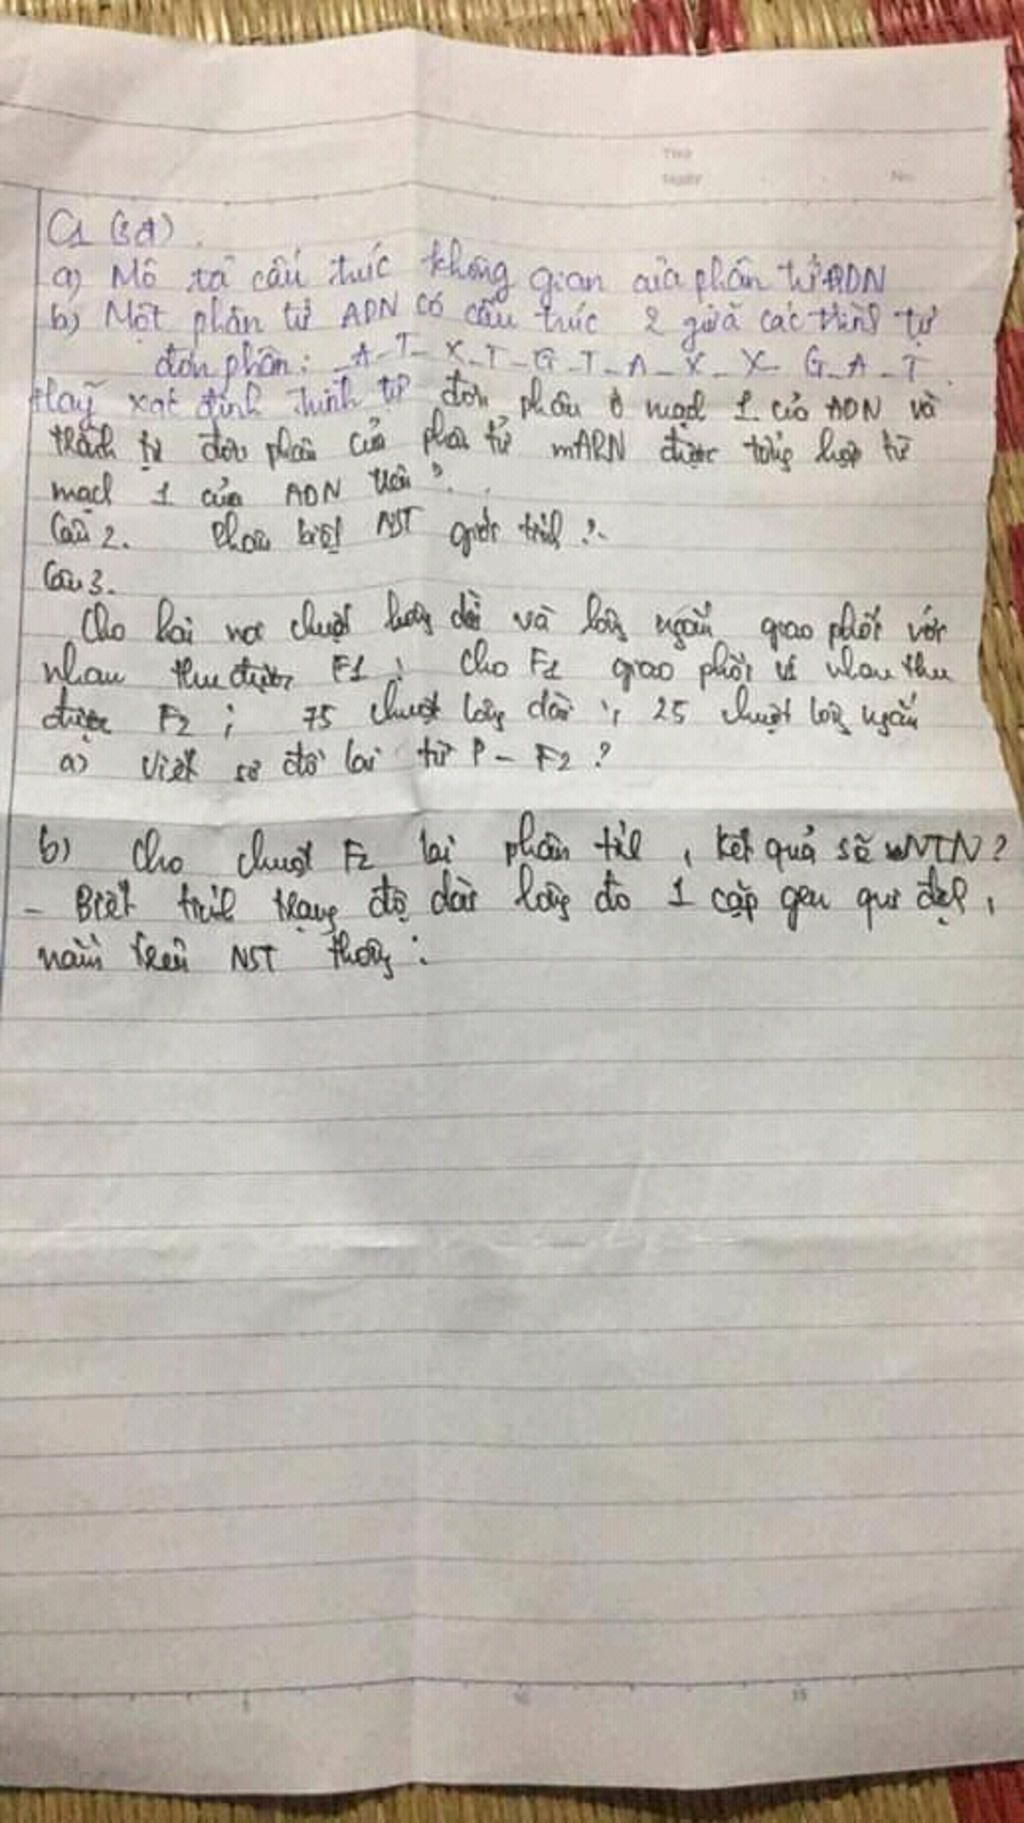 Thứ
Ngày
No.
C1 (3đ).
a) Mô tả cấu trúc không gian của phân tử ADN
b) Một phân tử ADN có cấu trúc 2 giữa các trình tự
đơn phân: _A_T_X_T_G_T_A_X_X_G_A_T
Hãy xát định trình tự đơn phân ở mạch 1 của ADN và
tự đơn phân của phân tử mARN được tổng hợp từ
mạch 1 của ADN trên?
Câu 2. Phân biệt NST giới tính?
Câu 3.
Cho hai nòi chuột lông dài và lông ngắn giao phối với
nhau thu được F1; cho F1 giao phối vs nhau thu
được F2; 75 chuột lông dài; 25 chuột lông ngắn
a) Viết sơ đồ lai từ P - F2?
b) Cho chuột F2 lai phân tích, kết quả sẽ NTN?
- Biết tính trạng độ dài lông do 1 cặp gen qui định,
nằm trên NST thường:
5
10
15